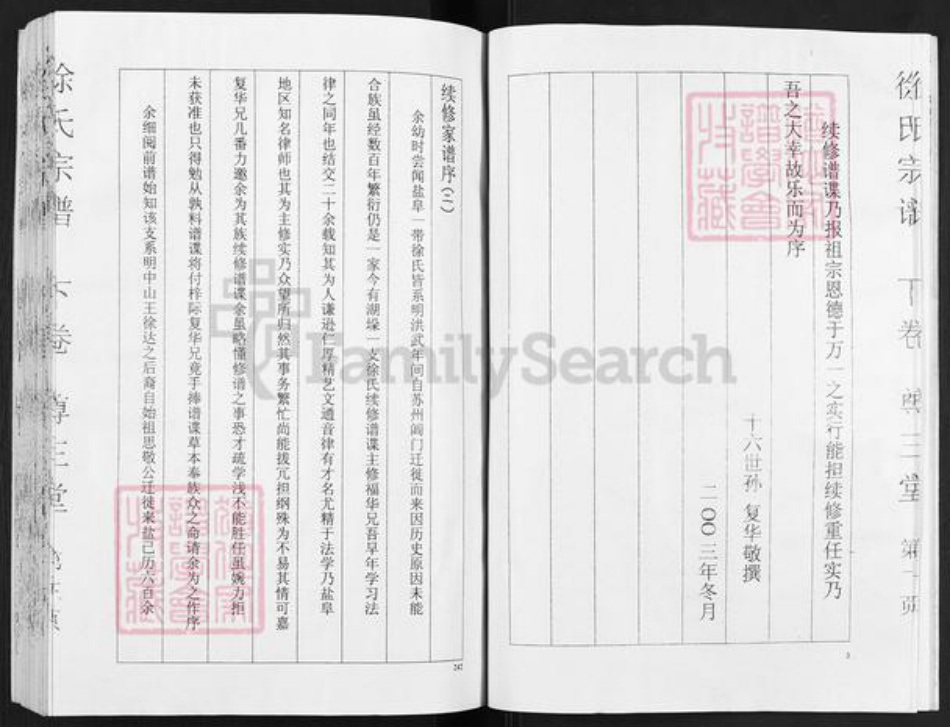 徐氏宗谱 下卷 尊三堂 第二页
续修谱谍乃报祖宗恩德于万一之实行能担续修重任实乃
吾之大幸故乐而为序
十六世孙 复华敬撰
二〇〇三年冬月
3
续修家谱序(二)
余幼时尝闻盐阜一带徐氏皆系明洪武年间自苏州阊门迁徙而来因历史原因未能
合族虽经数百年繁衍仍是一家今有湖垛一支徐氏续修谱谍主修福华兄吾早年学习法
律之同年也结交二十余载知其为人谦逊仁厚精艺文通音律有才名尤精于法学乃盐阜
地区知名律师也其为主修实乃众望所归然其事务繁忙尚能拨冗担纲殊为不易其情可嘉
复华兄几番力邀余为其族续修谱谍余虽略懂修谱之事恐才疏学浅不能胜任虽婉力拒
未获准也只得勉从孰料谱谍将付梓际复华兄竟手捧谱谍草本奉族众之命请余为之作序
余细阅前谱始知该支系明中山王徐达之后裔自始祖思敬公迁徙来盐已历六百余
242
徐氏宗谱 下卷 尊三堂
FamilySearch